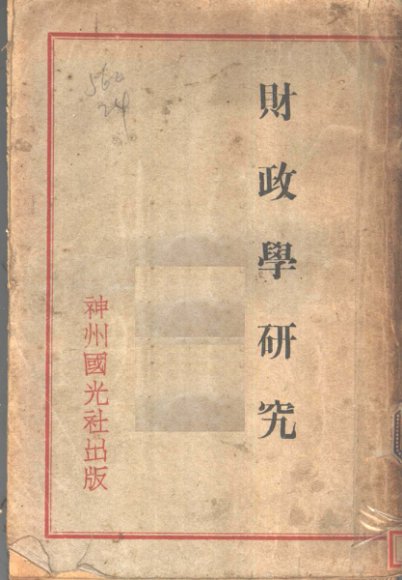 財政學研究
神州國光社出版
560
24